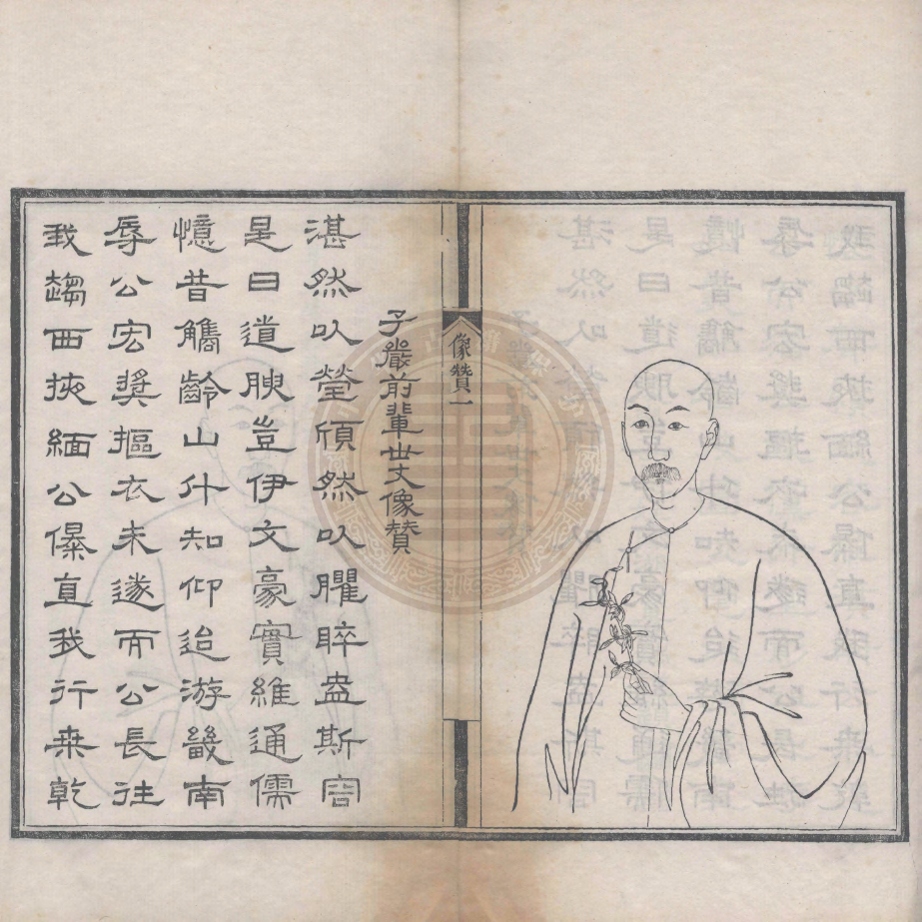 像贊一
子嚴前輩世丈像贊
湛然以瑩頎然以臞睟盎斯容
是曰道腴豈伊文豪實維通儒
憶昔觿齡山斗知仰迨游畿南
辱公宏獎摳衣未遂而公長往
我趨西挾緬公儤直我行桒乾